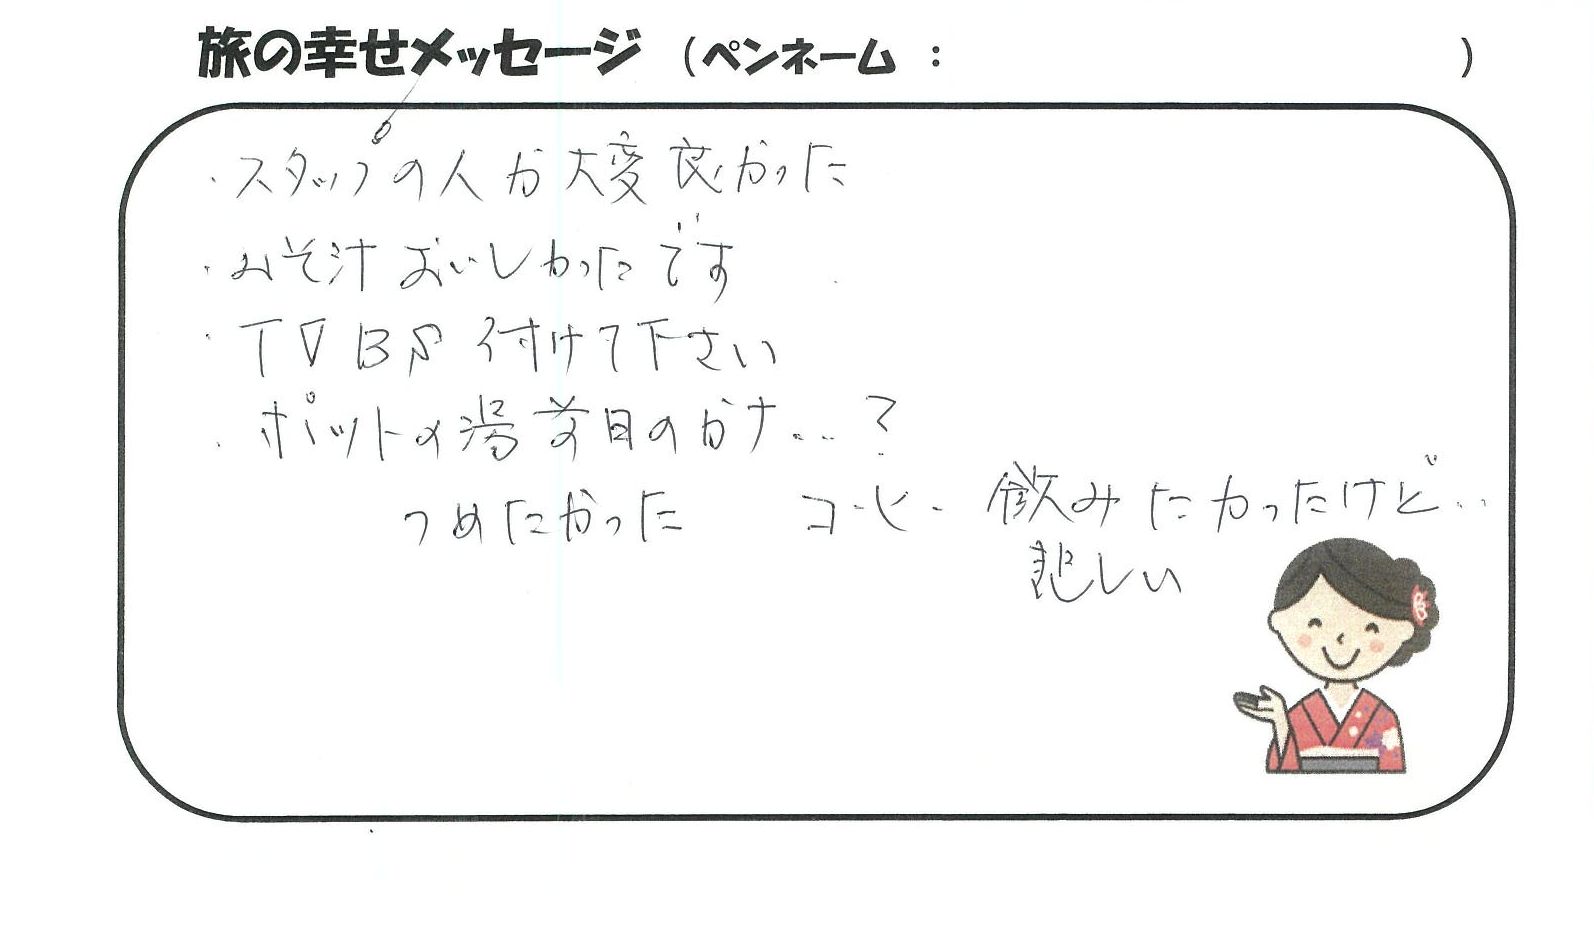 旅の幸せメッセージ (ペンネーム : )
・スタッフの人が大変良かった
・みそ汁おいしかったです
・TV BS 付けて下さい
・ポットの湯前日のかナ...?
つめたかった コーヒー飲みたかったけど..
悲しい